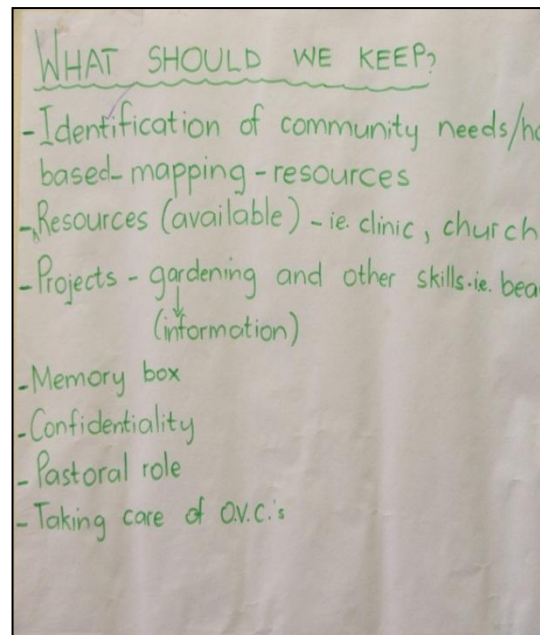 WHAT SHOULD WE KEEP?
- Identification of community needs/
based-mapping - resources
- Resources (available) - ie. clinic, church
- Projects - gardening and other skills.ie.
(information)
- Memory box
- Confidentiality
- Pastoral role
- Taking care of O.V.C.'s